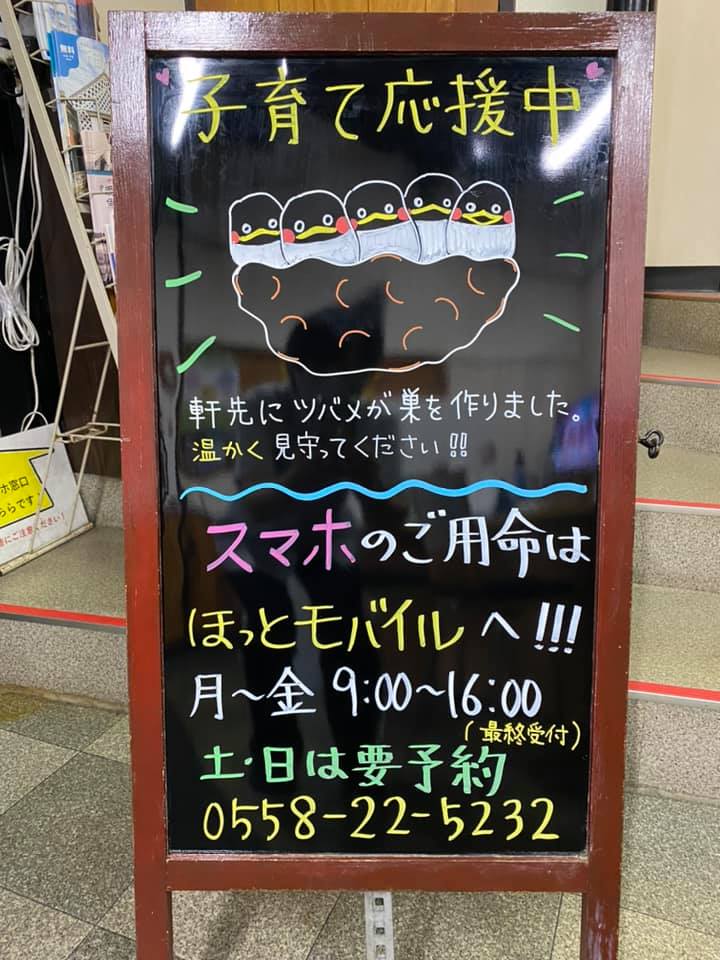 無料
子育て応援中
軒先にツバメが巣を作りました。
温かく見守ってください!!
ホ窓口
ちらです!
にご注意ください!
スマホのご用命は
ほっとモバイルへ!!!
月～金 9:00～16:00
(最終受付)
土・日は要予約
0558-22-5232